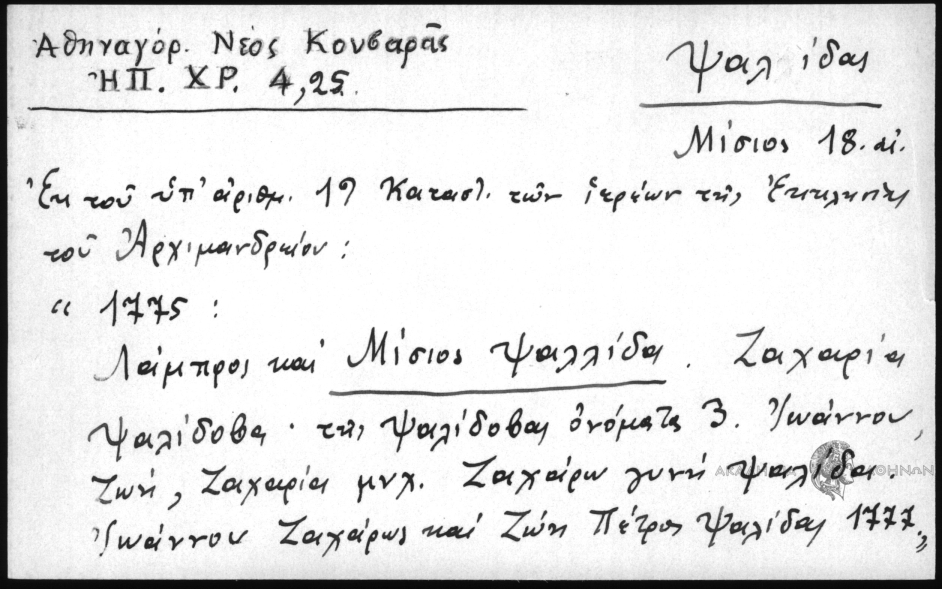 Ἀθηναγόρ. Νέος Κουβαρᾶς
ἨΠ. ΧΡ. 4,25.
Ψαλίδας
Μίσιος 18. αἰ.
Ἐκ τοῦ ὑπ' ἀριθμ. 19 Καταστ. τῶν ἱερέων τῆς Ἐκκλησίας
τοῦ Ἀρχιμανδρείου:
“ 1775 :
Λάμπρος καὶ Μίσιος Ψαλλίδα. Ζαχαρία
Ψαλίδοβα · τῆς Ψαλίδοβας ὀνόματα 3. Ἰωάννου,
Ζωή, Ζαχαρία μνχ. Ζαχάρω γυνή Ψαλίδα.
Ἰωάννου Ζαχάρως καὶ Ζώη Πέτρος Ψαλίδας 1777.„
ΑΚΑΔΗΜΙΑ ΑΘΗΝΩΝ